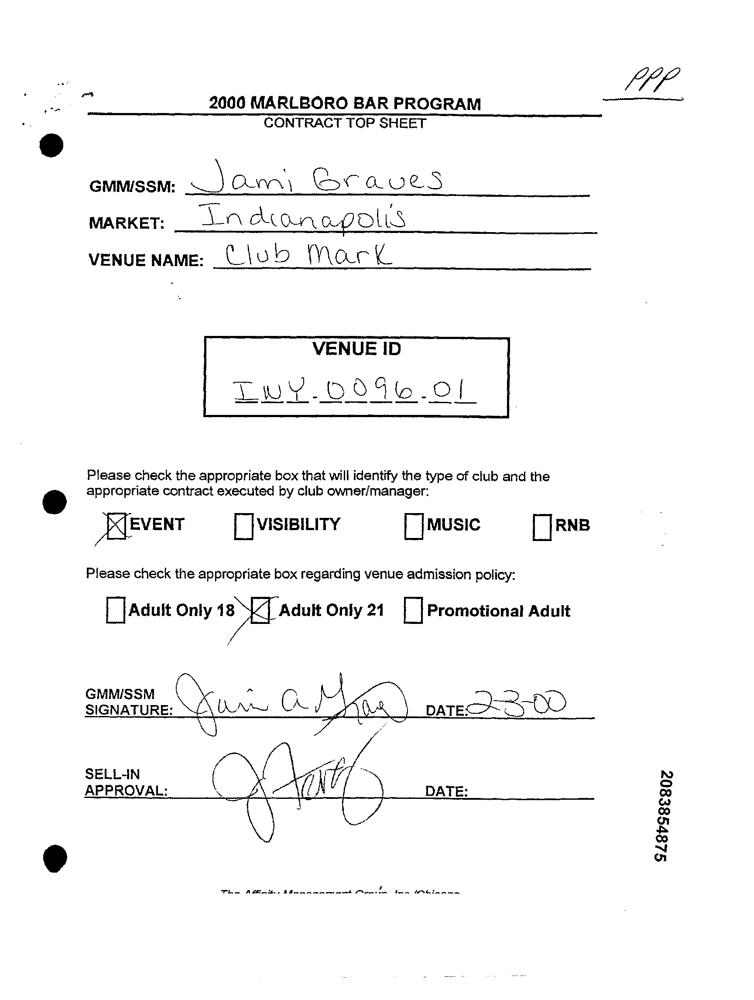 PPP
2000 MARLBORO BAR PROGRAM
CONTRACT TOP SHEET
GMM/SSM: Jami Graves
MARKET: Indianapolis
VENUE NAME: Club Mark
VENUE ID
INY-0096-01
Please check the appropriate box that will identify the type of club and the
appropriate contract executed by club owner/manager:
EVENT VISIBILITY MUSIC RNB
Please check the appropriate box regarding venue admission policy:
Adult Only 18 Adult Only 21 Promotional Adult
GMM/SSM
SIGNATURE: Jami A Graves DATE: 2-3-00
SELL-IN
APPROVAL: DATE:
2083854875
The Affinity Management Group, Inc./Chicago